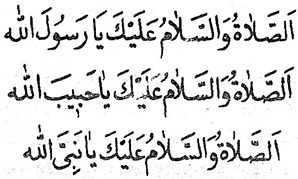 اَلصَّلَاةُ وَالسَّلَامُ عَلَيْكَ يَا رَسُولَ الله
اَلصَّلَاةُ وَالسَّلَامُ عَلَيْكَ يَا حَبِيبَ الله
اَلصَّلَاةُ وَالسَّلَامُ عَلَيْكَ يَا نَبِىَّ الله